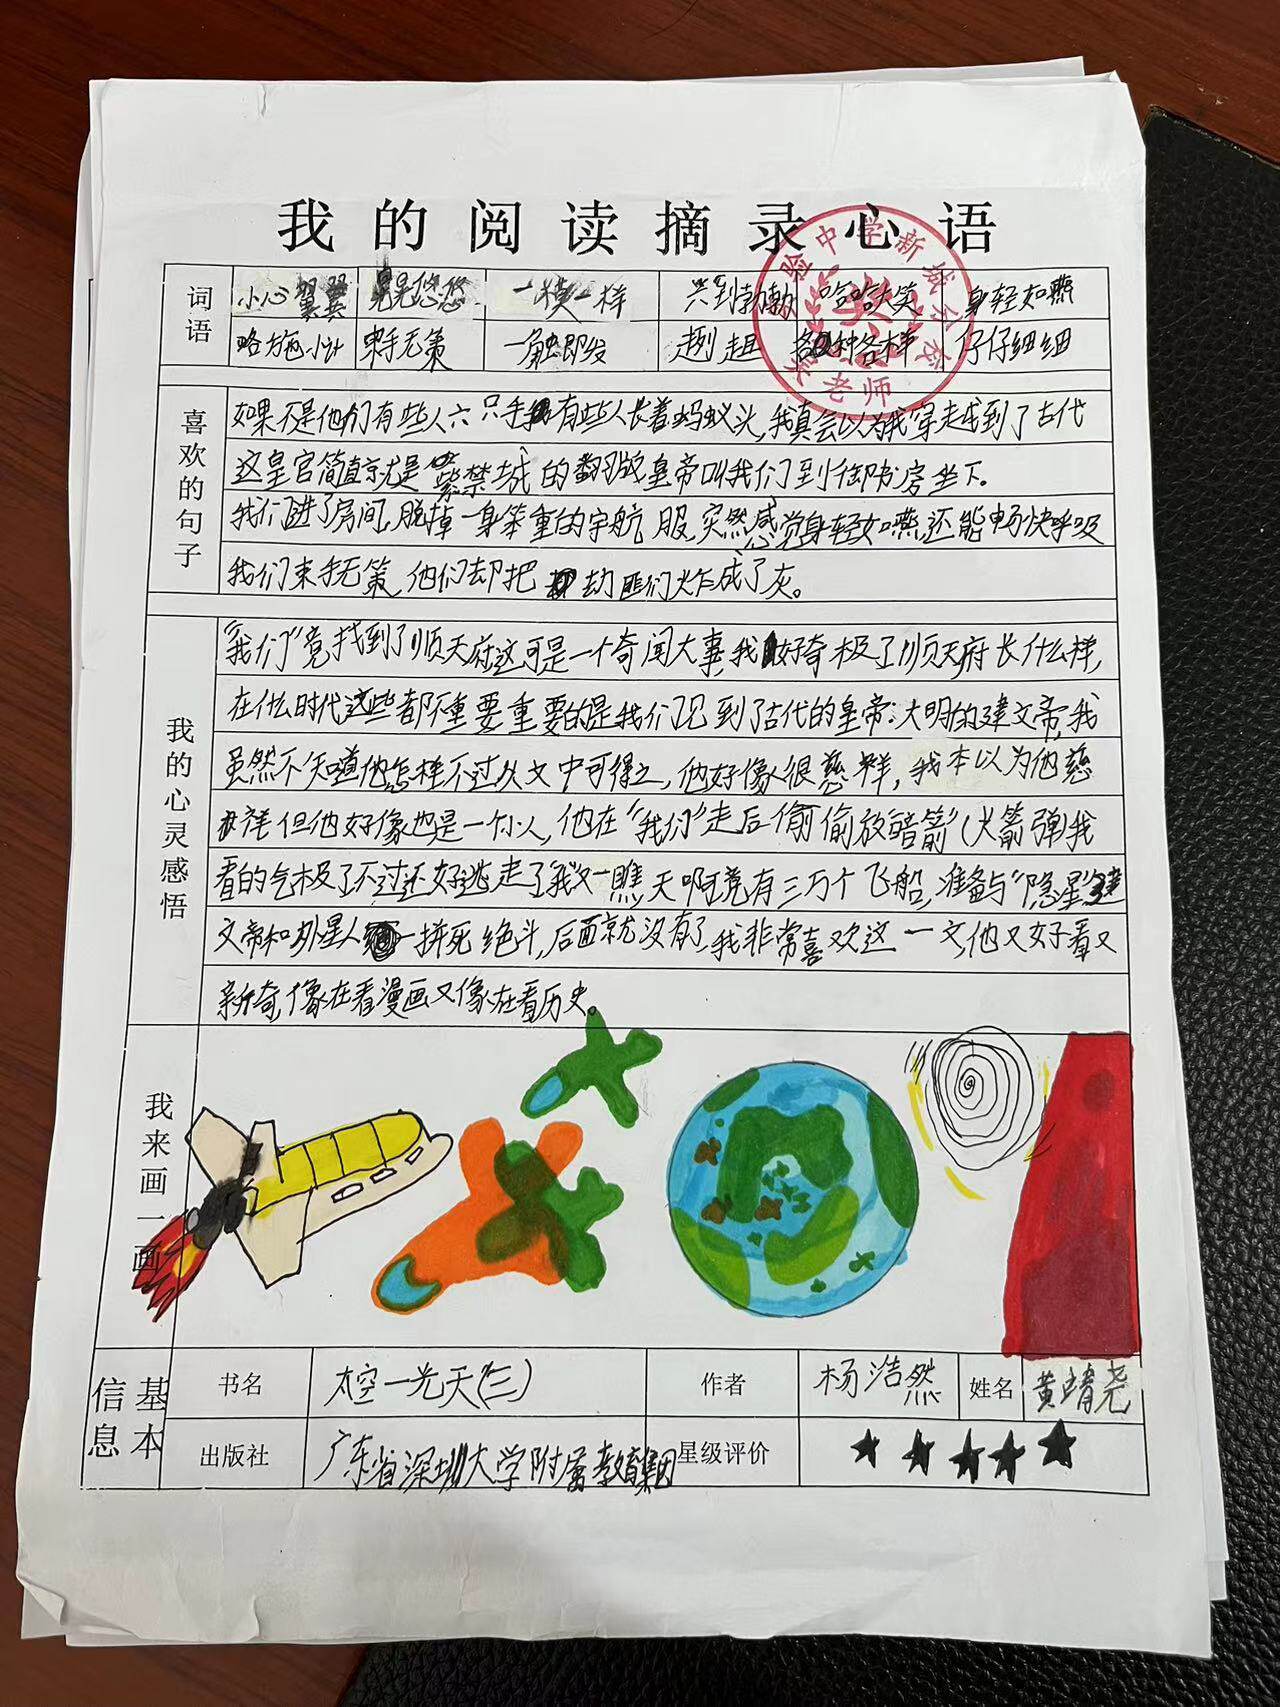 我的阅读摘录心语
验中学新城分校
奖
老师
词语
小心翼翼 晃晃悠悠 一模一样 兴到勃勃 哈哈大笑 身轻如燕
略施小计 束手无策 一触即发 趔趄 各种各样 仔仔细细
喜欢的句子
如果不是他们有些人六只手有些人长着蚂蚁头,我真会以为我穿越到了古代
这皇官简直就是紫禁城的翻版皇帝叫我们到御书房坐下。
我们进了房间,脱掉一身笨重的宇航服,突然感觉身轻如燕,还能畅快呼吸
我们束手无策,他们却把劫匪们炸成了灰。
我的心灵感悟
“我们”竟找到了顺天府这可是一个奇闻大事,我好奇极了顺天府长什么样,
在什么时代这些都不重要重要的是我们见到了古代的皇帝:大明的建文帝,我
虽然不知道他怎样不过从文中可得之,他好像很慈祥,我本以为他慈
祥但他好像也是一个小人,他在“我们”走后偷偷放暗箭”(火箭弹)我
看的气极了不过还好逃走了我又一瞧,天啊竟有三万个飞船,准备与“隐星”建
文帝和外星人一拼死绝斗,后面就没有了,我非常喜欢这一文,他又好看又
新奇,像在看漫画又像在看历史。
我来画一画
基本信息
书名 太空一光天(三) 作者 杨浩然 姓名 黄堉尧
出版社 广东省深圳大学附属教育集团 星级评价 ★★★★★